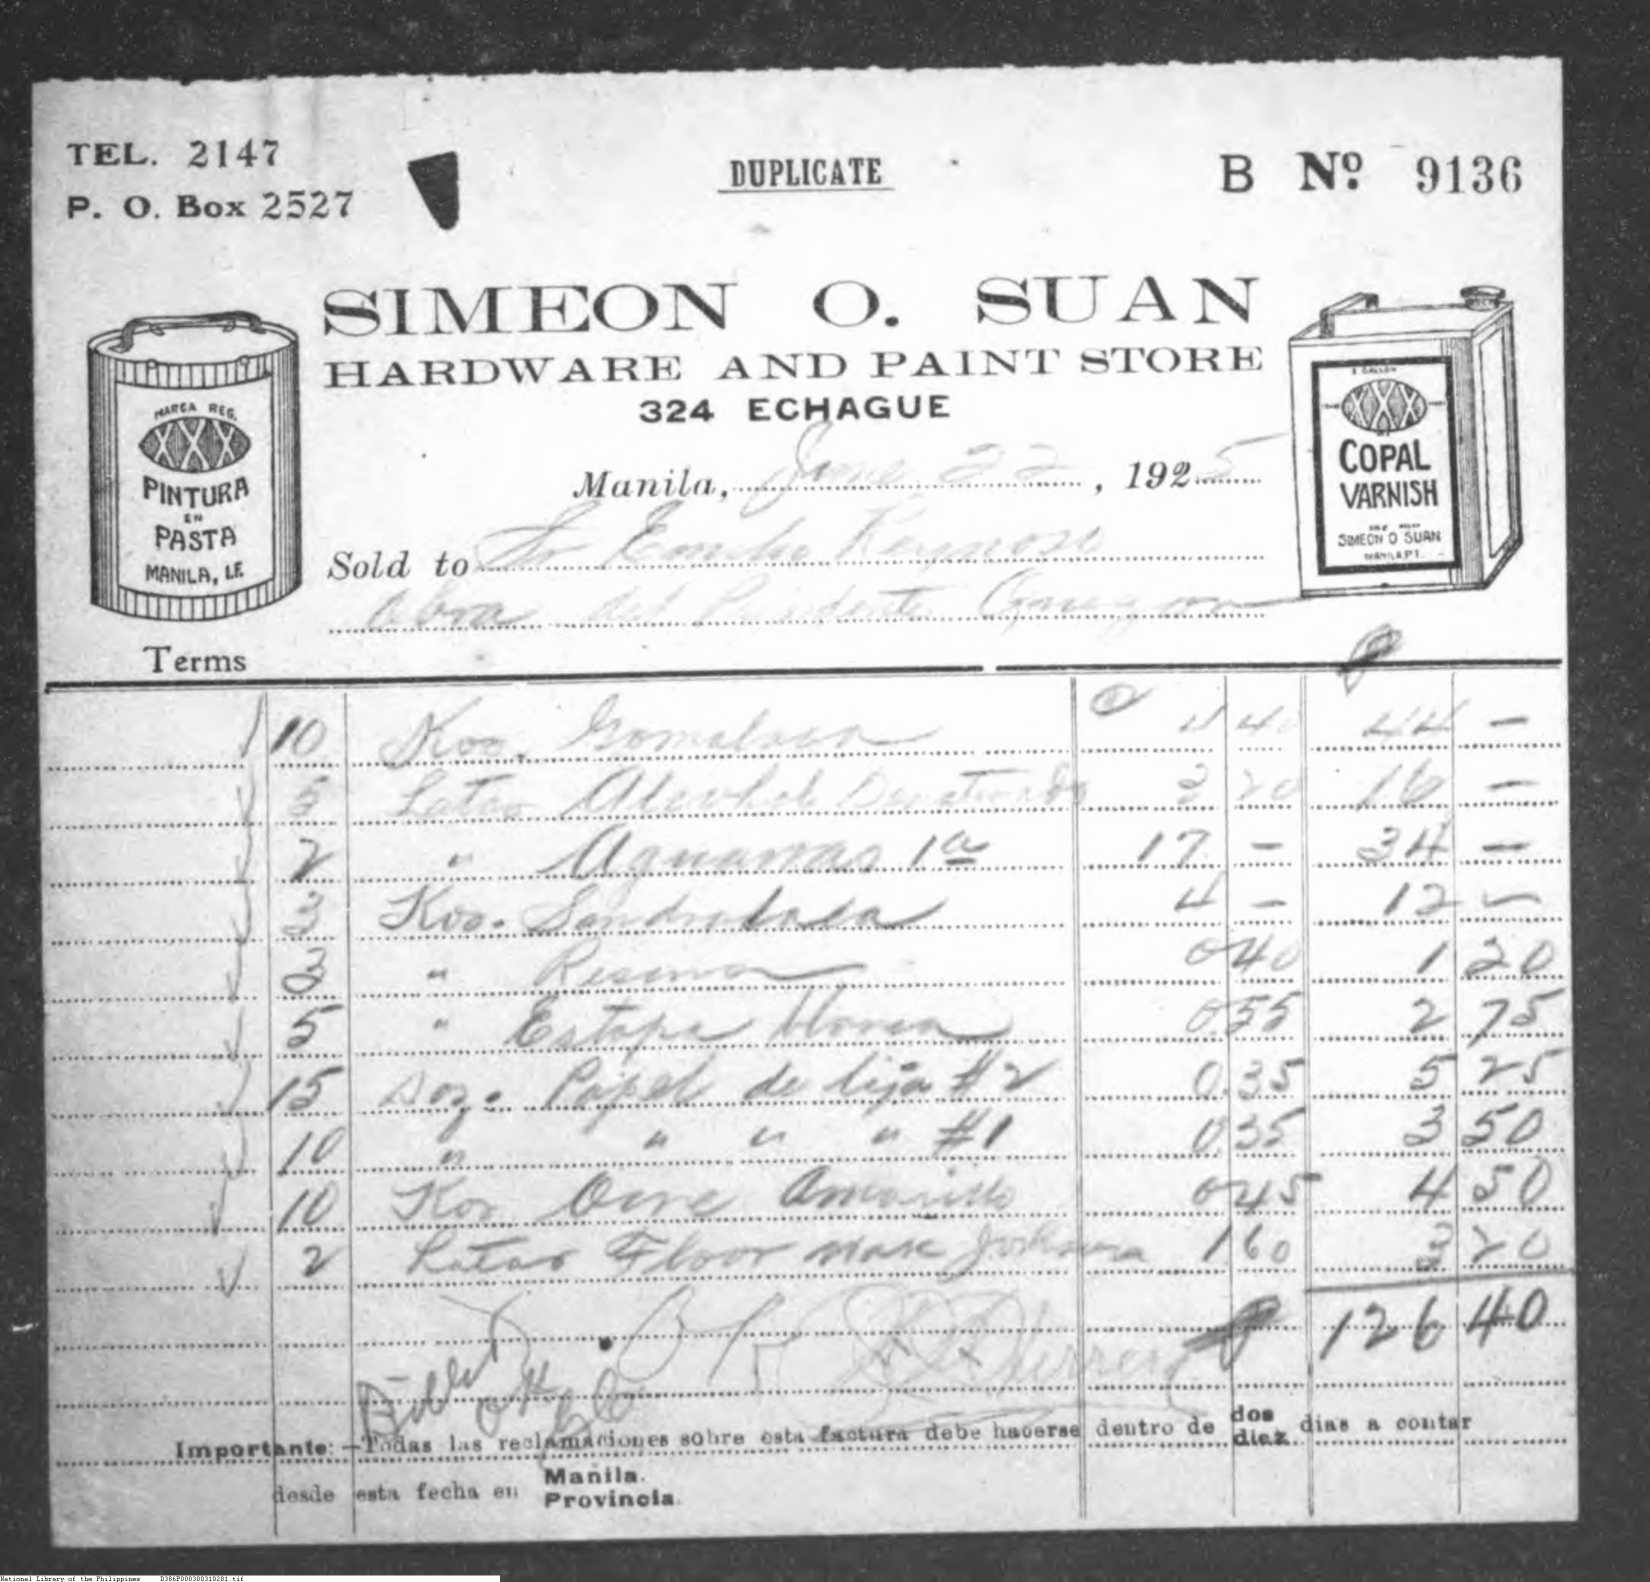 TEL. 2147
P. O. Box 2527
DUPLICATE
B Nº 9136
SIMEON O. SUAN
HARDWARE AND PAINT STORE
324 ECHAGUE
MARCA REG.
PINTURA
EN
PASTA
MANILA, I.F.
1 GALLON
COPAL
VARNISH
SIMEON O SUAN
MANILA, P.I.
Manila, June 22, 1925
Sold to Sr Emilio Reynoso
Obra del Presidente
Terms
10 Kos. Gomalaca 4 40 44 —
5 Latas Alcohol 3 20 16 —
2 " Aguarras 1a 17 — 34 —
3 Kos. Sandralaca 4 — 12 —
3 " Resina 0 40 1 20
5 " Estopa blanca 0.55 2 75
15 Doz. Papel de lija #2 0.35 5 25
10 " " " " #1 0.35 3 50
10 Kos Ocre Amarillo 0 45 4 50
2 Latas Floor wax Johnson 1 60 3 20
126 40
OK
Importante:—Todas las reclamaciones sobre esta factura debe hacerse dentro de dos diez dias a contar
desde esta fecha en Manila. Provincia.
National Library of the Philippines D386P000300310281.tif